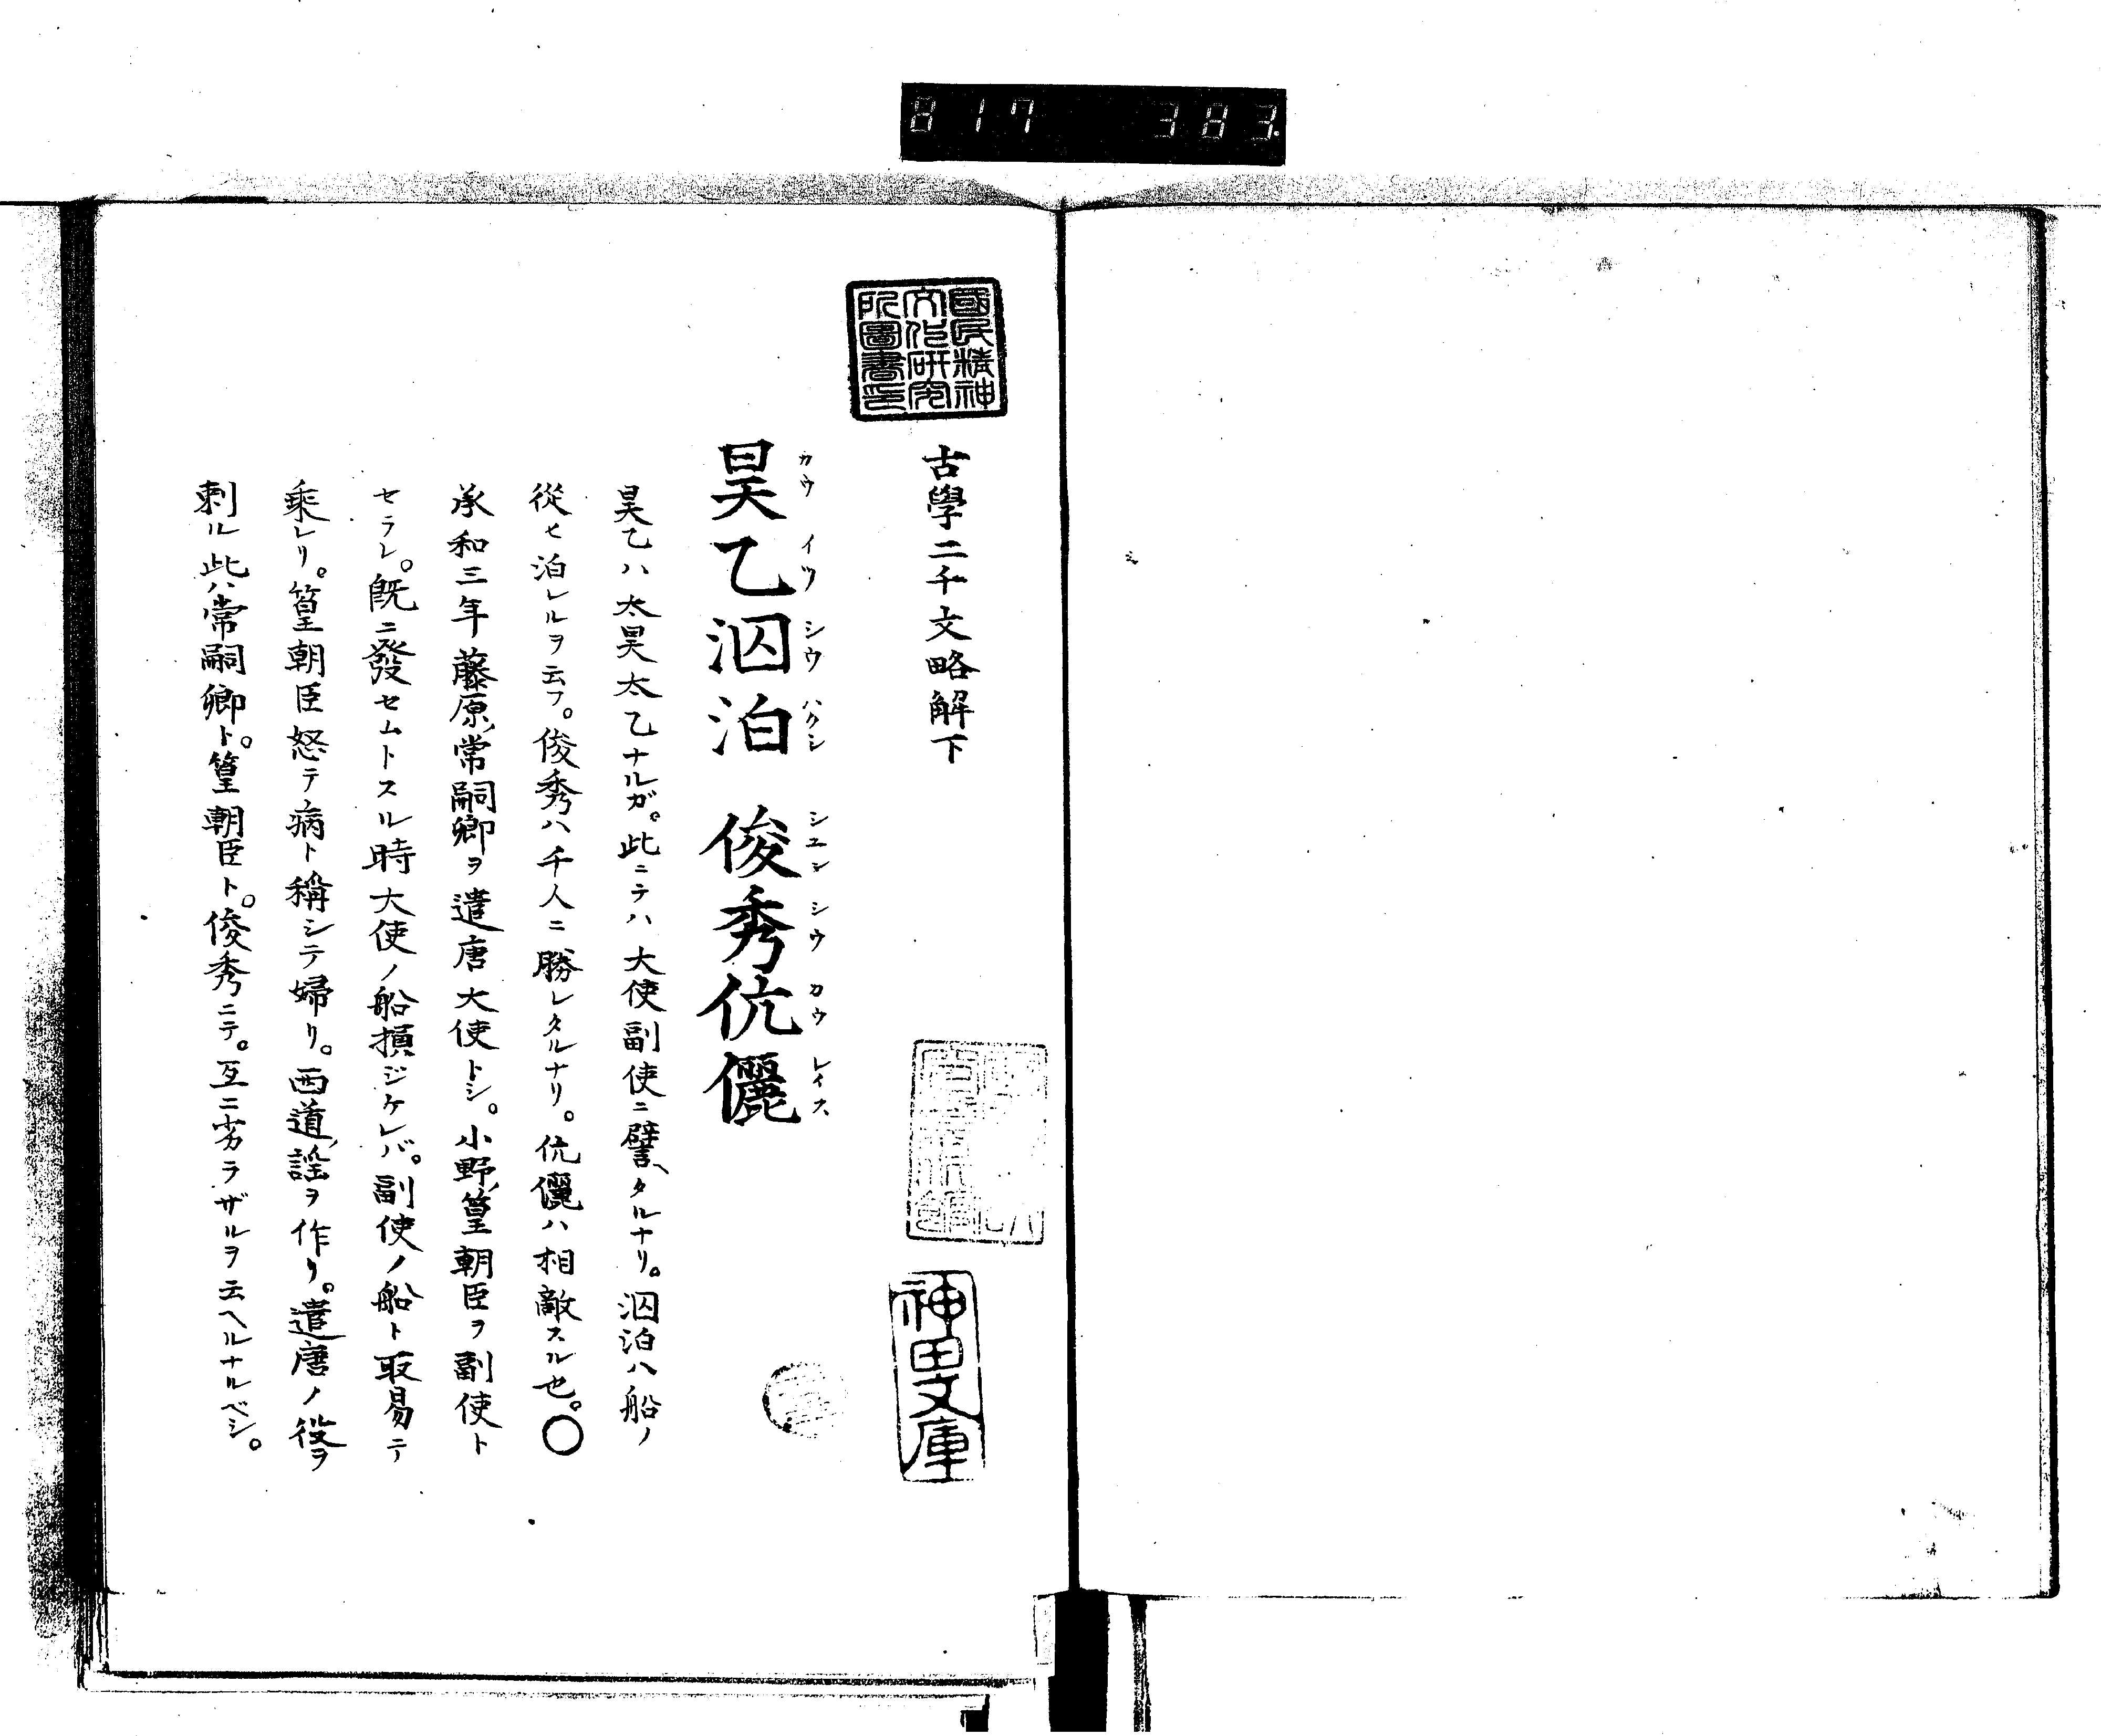 817 383.
國民精神
文化研究
所圖書印
古學二千文略解下
神田文庫
昊乙泅泊 俊秀伉儷
カウ イツ シウ ハクシ シユン シウ カウ レイス
昊乙ハ太昊太乙ナルガ。此ニテハ大使副使ニ譬ヘタルナリ。泅泊ハ船ノ
從セ泊レルヲ云フ。俊秀ハ千人ニ勝レタルナリ。伉儷ハ相敵スル也。〇
承和三年藤原ノ常嗣卿ヲ遣唐大使トシ。小野ノ篁朝臣ヲ副使ト
セラレ。既ニ發セムトスル時大使ノ船損ジケレバ。副使ノ船ト取易テ
乘レリ。篁朝臣怒テ病ト稱シテ婦リ。西道ノ謠ヲ作リ。遣唐ノ役ヲ
刺ル此ハ常嗣卿ト。篁朝臣ト。俊秀ニテ。互ニ劣ラザルヲ云ヘルナルベシ。